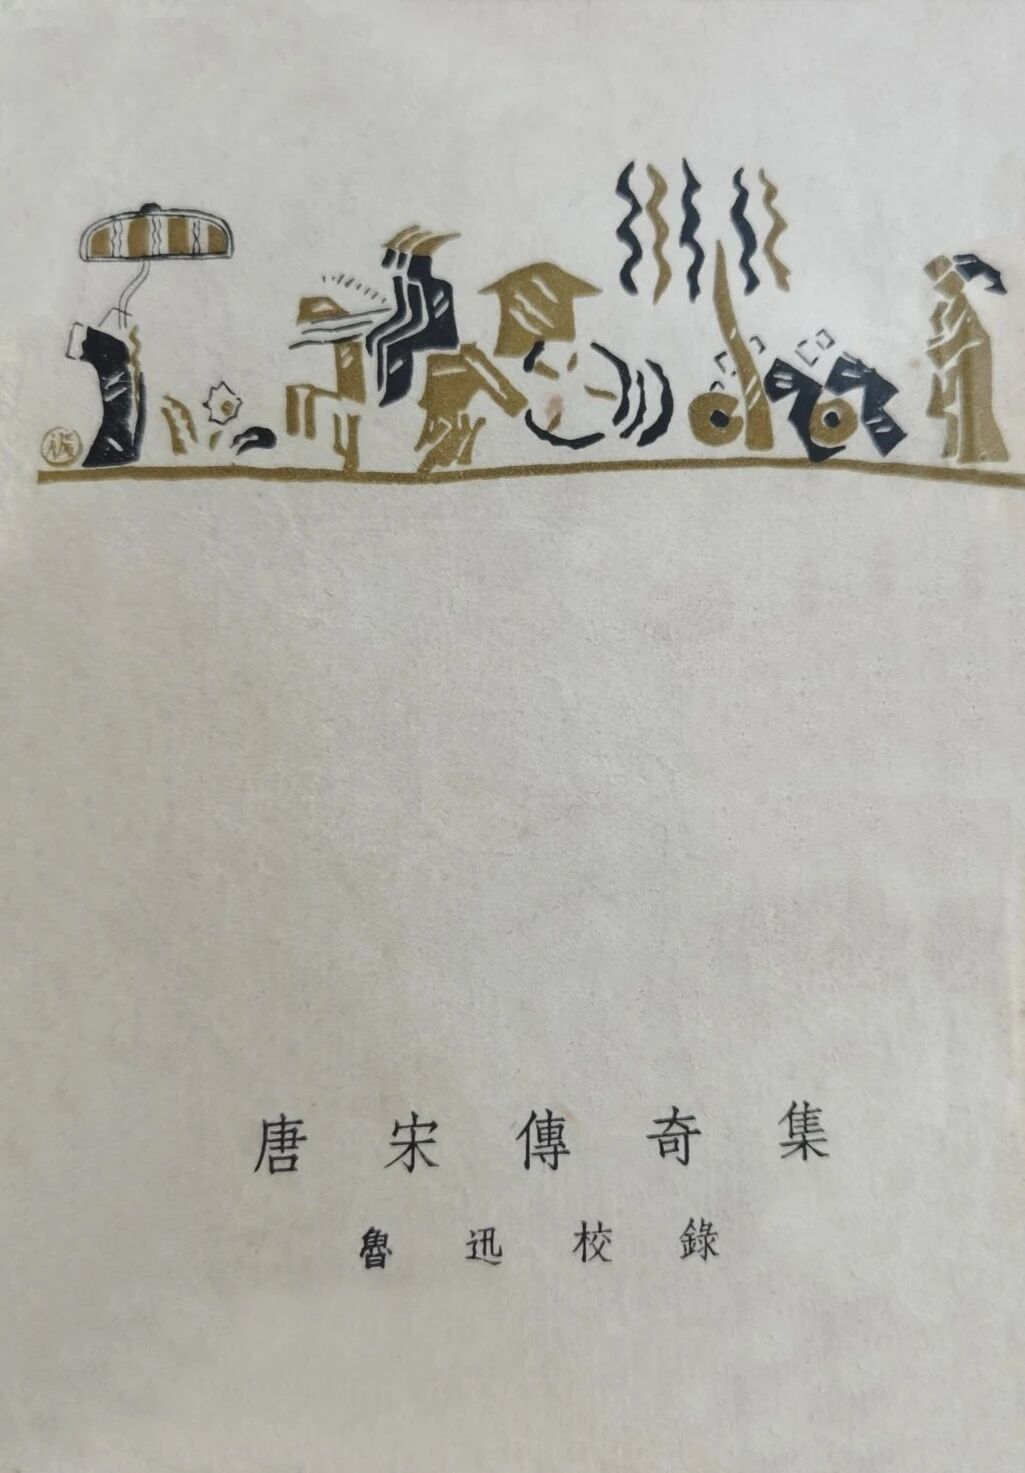 唐宋傳奇集
魯迅校錄